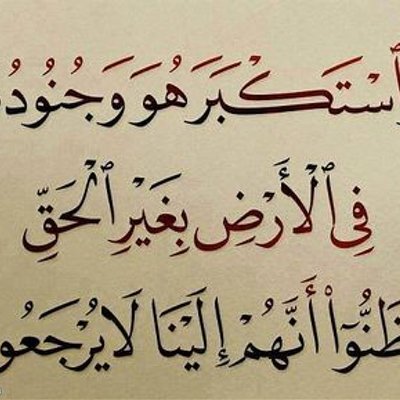 ٱسْتَكْبَرَ هُوَ وَجُنُودُ
فِي ٱلْأَرْضِ بِغَيْرِ ٱلْحَقِّ
ظَنُّوٓا۟ أَنَّهُمْ إِلَيْنَا لَا يُرْجَعُو